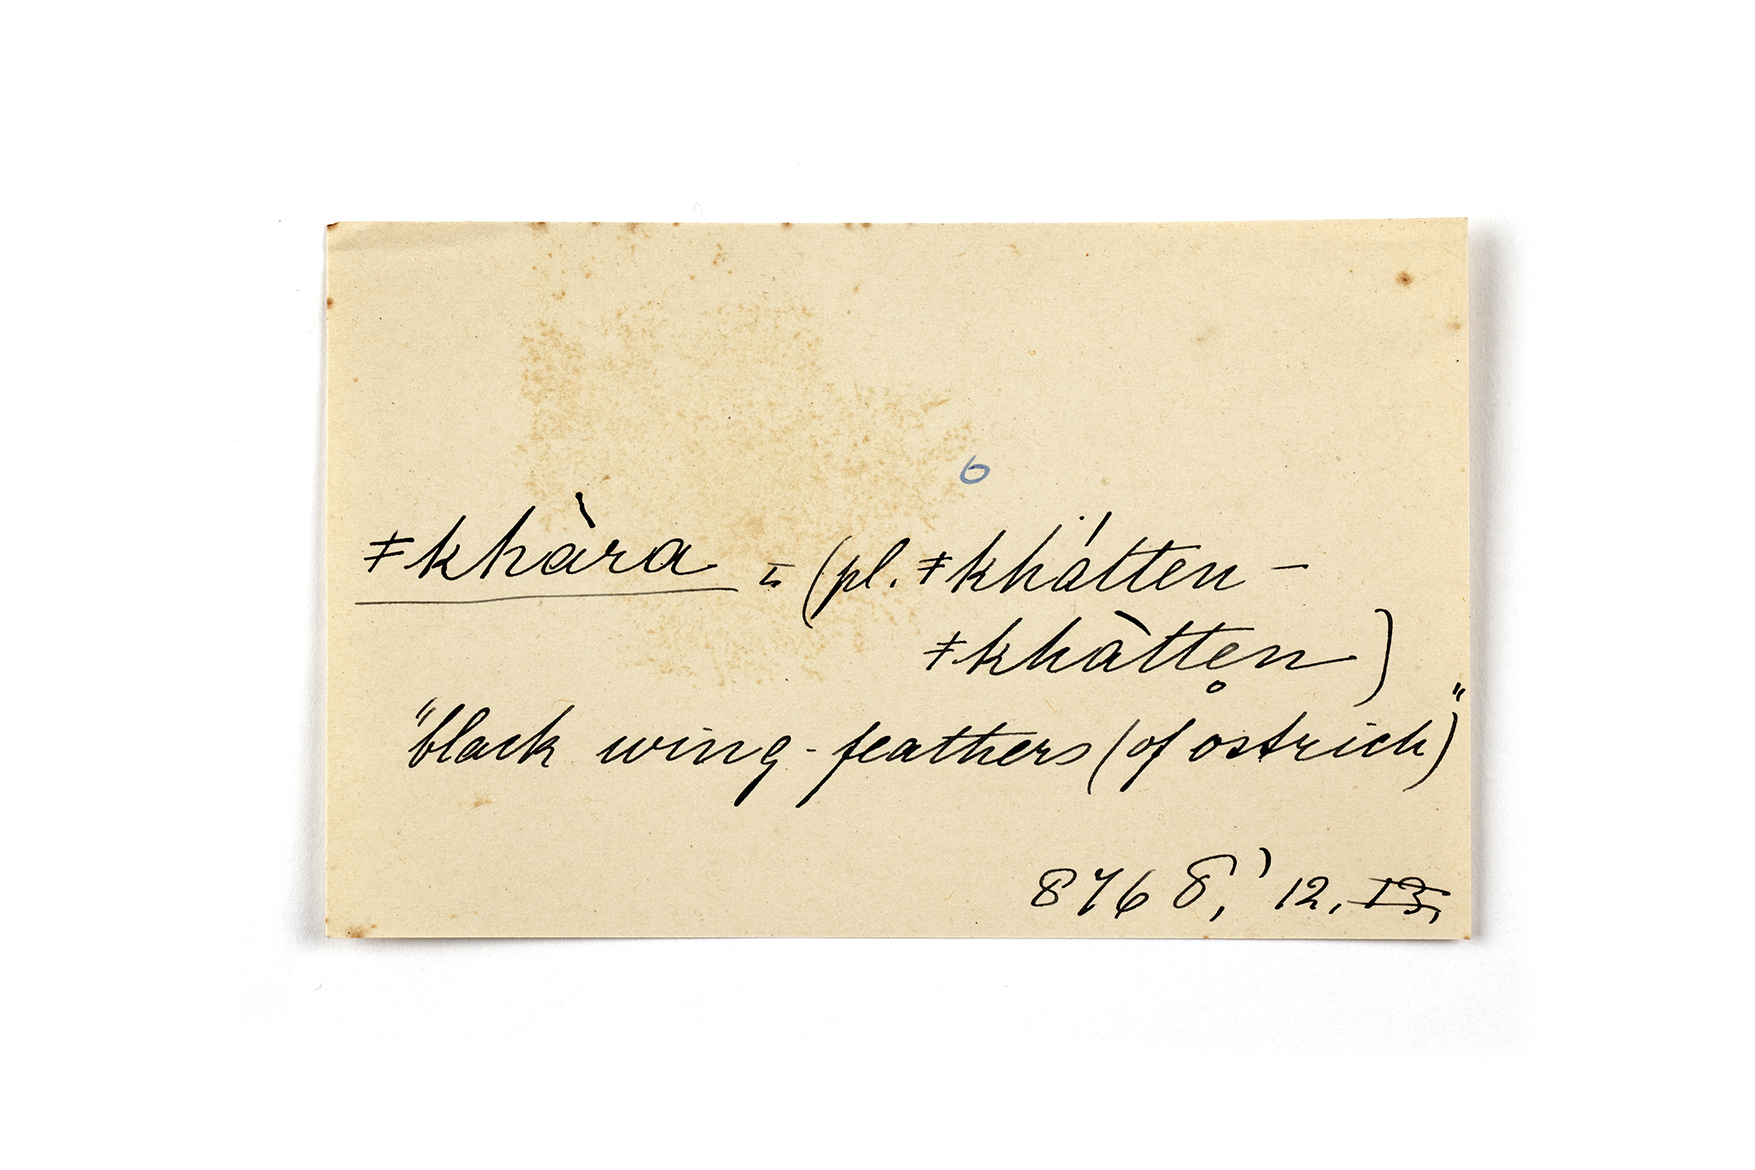 6
ǂkhàra = (pl. ǂkhátten –
ǂkhàtte̥n)
"black wing-feathers (of ostrich)"
8768,' 12, 13,